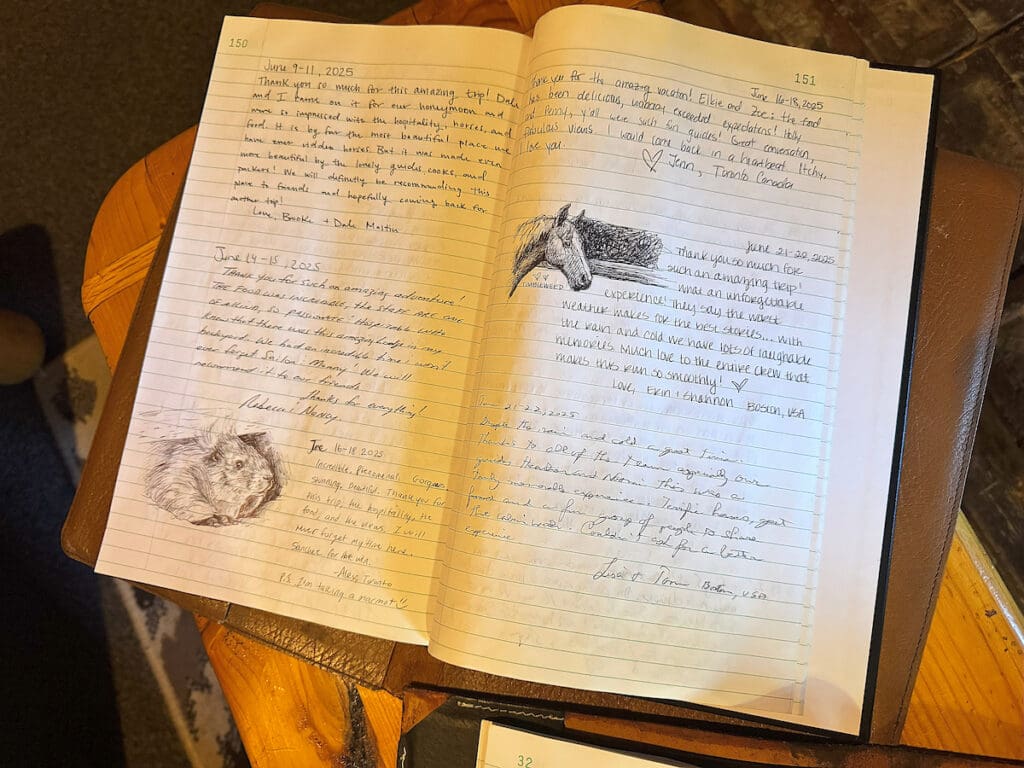 150
June 9-11, 2025
Thank you so much for this amazing trip! Dale
and I came on it for our honeymoon and
were so impressed with the hopitality, horses, and
food. It is by far the most beautiful place we
have ever ridden horses. But it was made even
more beautiful by the lovely guides, cooks, and
packers! We will definitly be recommending this
place to friends and hopefully coming back for
another trip!
Love, Brooke + Dale Martin
June 14-15, 2025
Thank you for such an amazing adventure!
The food was incredible, the staff are one
of a kind, so passionate! Hospitable
know that there was this amazing lodge in my
backyard. We had an incredible time & won't
ever forget We will
recommend it to our friends
Thanks for everything!
Rebecca & Nancy
June 16-18 2025
Incredible, Phenomenal, Gorgeous,
stunning, beautiful. Thank you for
this trip, the hospitality, the
food, and the views. I will
never forget my time here.
for
-Alex, Toronto
P.S. I'm taking a marmot
151
June 16-18, 2025
Thank you for the amazing vacation! Elkie and Zoe: the food
has been delicious, exceeded expectations! Holly
and Penny, y'all were such fun guides! Great conversation,
fabulous views. I would come back in a heartbeat. Itchy,
I love you.
Jenn, Toronto Canada
TUMBLEWEED
June 21-22, 2025
Thank you so much for
such an amazing trip!
what an unforgettable
experience! They say the worst
weather makes for the best stories... with
the rain and cold we have lots of laughable
memories. Much love to the entire crew that
makes this run so smoothly!
Love, Erin + Shannon Boston, USA
June 21-22, 2025
Despite the rain and cold a great time.
Thanks to all of the team especially our
guides and Naomi. This was a
truly memorable experience. Terrific horses, great
food and a fun group of people to share
the Couldn't ask for a better
experience
Lisa & Tom Boston, USA
32